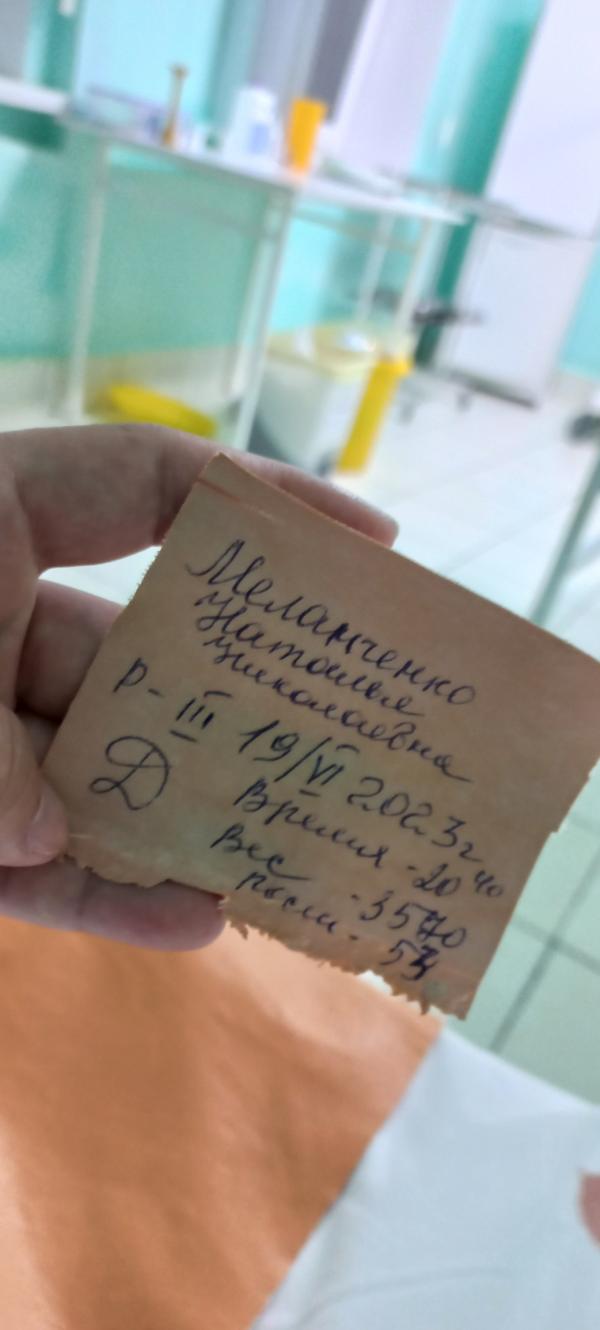 Меланченко
Наталья
Николаевна
р- III 19/VI 2023г
Д Время -20 40
Вес -3570
рост - 54